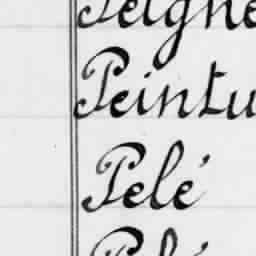 Peigne
Peintu
Pelé